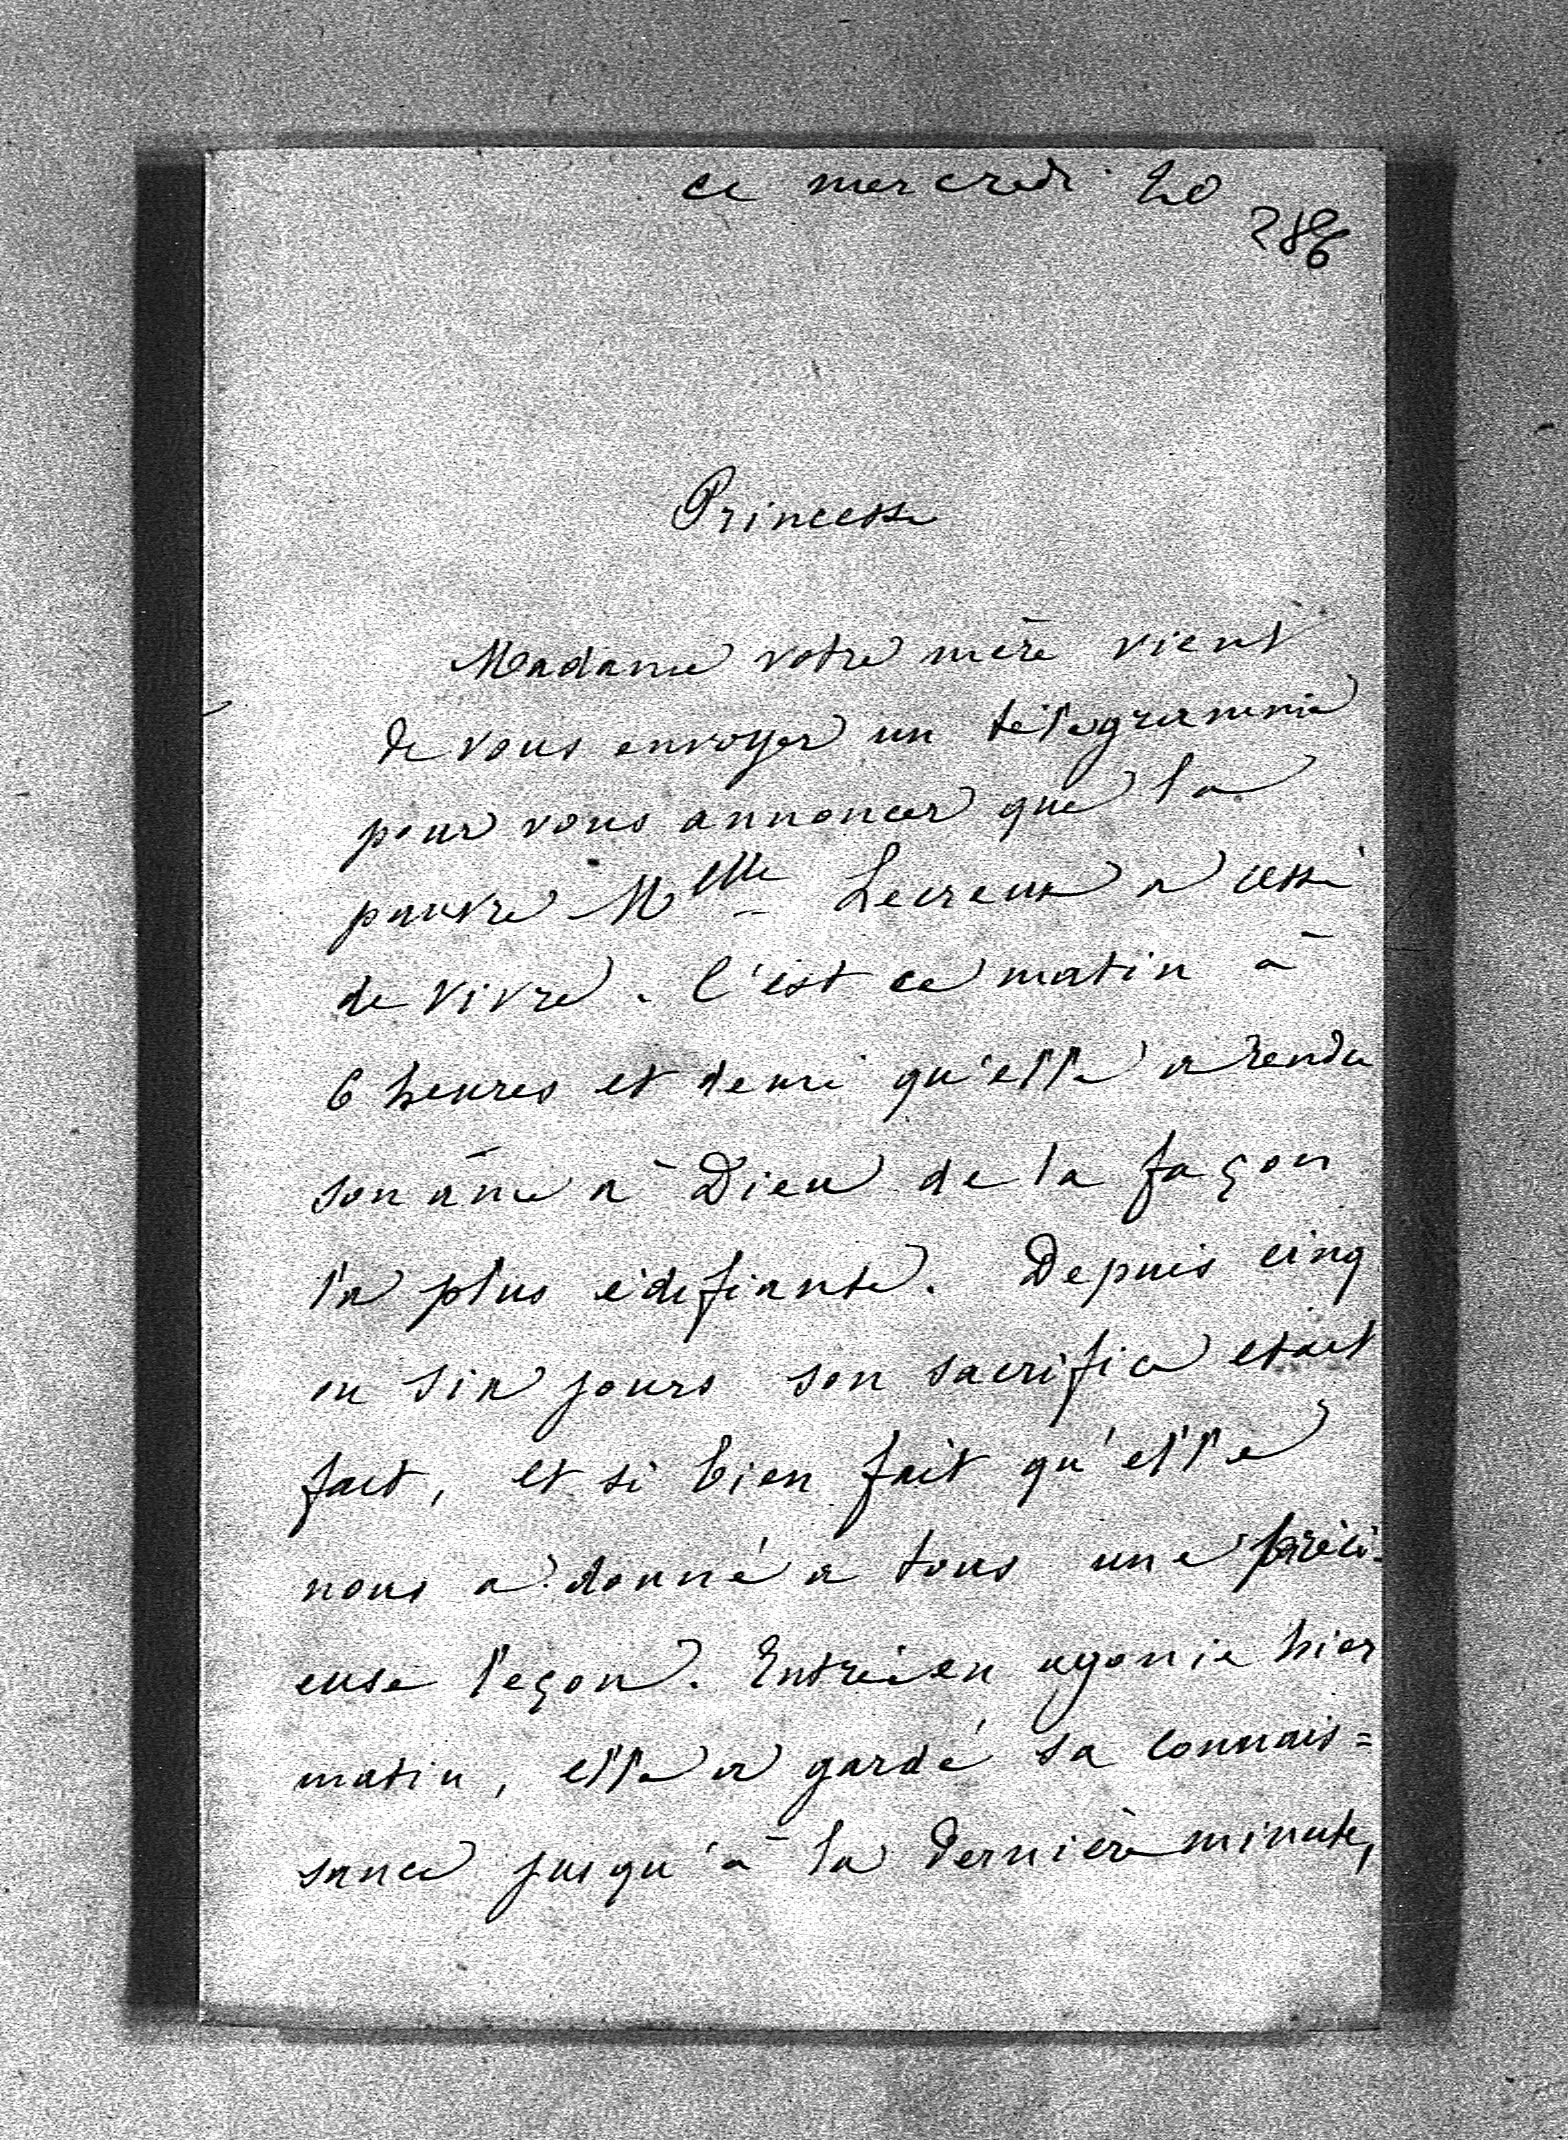 ce mercredi 20
286
Princesse
Madame votre mère vient
de vous envoyer un télégramme
pour vous annoncer que la
pauvre Melle Lecreux a cessé
de vivre. C'est ce matin à
6 heures et demi qu'elle a rendu
son âme à Dieu de la façon
la plus édifiante. Depuis cinq
ou six jours son sacrifice etait
fait, et si bien fait qu'elle
nous a donné a tous une préci-
euse leçon. Entrée en agonie hier
matin, elle a gardé sa connais=
sance jusqu'à la dernière minute,